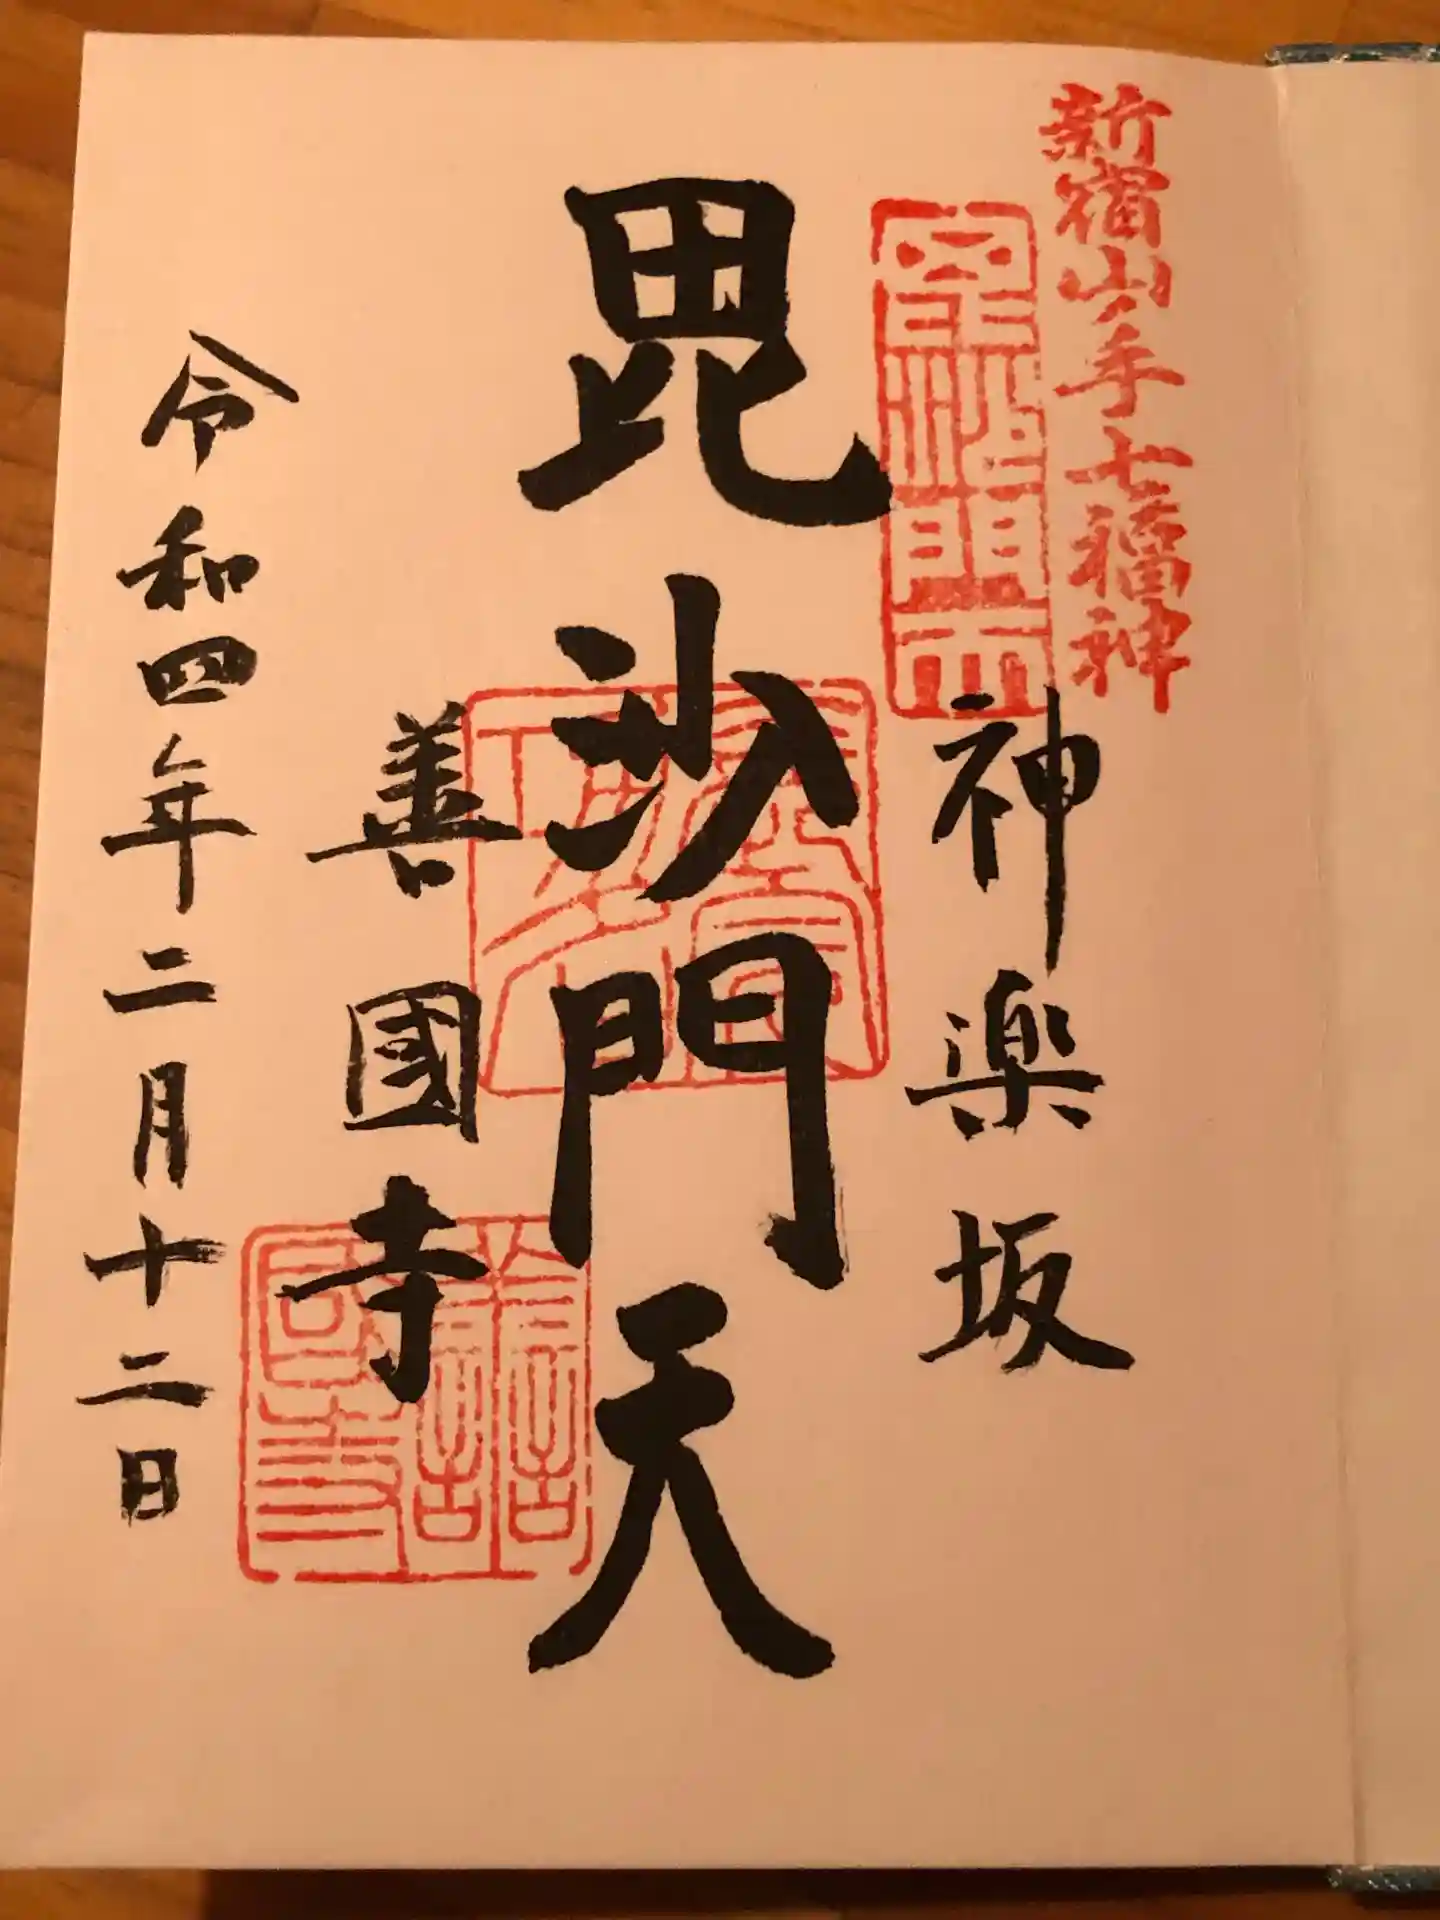 新宿山ノ手七福神
神楽坂
毘沙門天
善國寺
令和四年二月十二日
善國寺